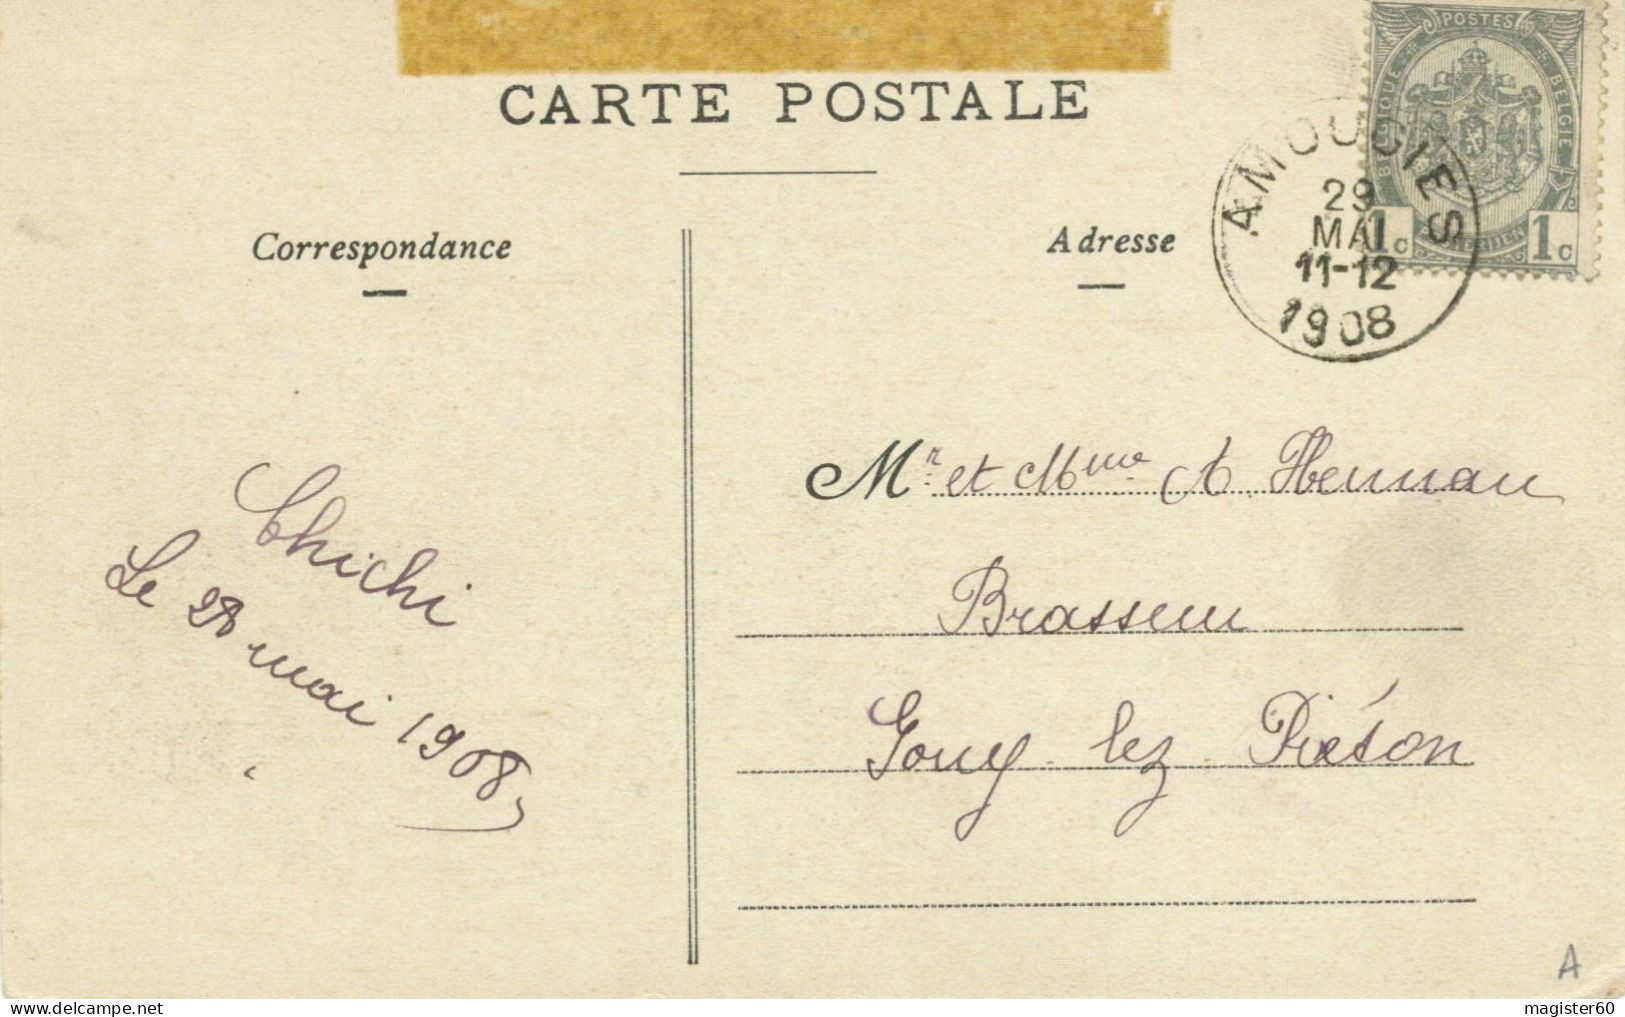 CARTE POSTALE
POSTES
BELGIQUE BELGIE
1c 1c
AMOUGIES
29
MAI
11-12
1908
Correspondance
Adresse
Chichi
Le 28 mai 1908
Mr et Mme A. Hennau
Brasseur
Gouy lez Piéton
A
magister60